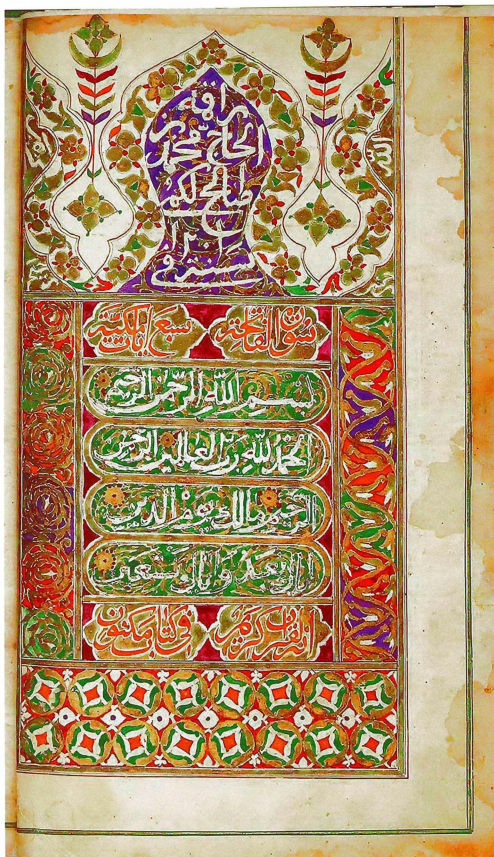 راقمه
الحاج محمد
صالح
سورة الفاتحة سبع ايات مكية
بسم الله الرحمن الرحيم
الحمد لله رب العالمين الرحمن
الرحيم مالك يوم الدين
اياك نعبد واياك نستعين
انه لقران كريم في كتاب مكنون